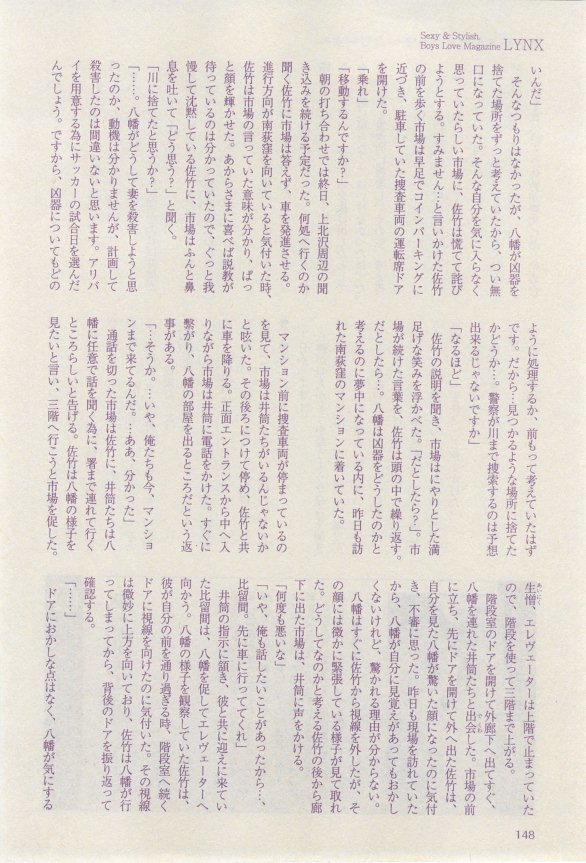 Sexy & Stylish,
Boys Love Magazine LYNX
いんだ」
　そんなつもりはなかったが、八幡が凶器を
捨てた場所をずっと考えていたから、つい無
口になっていた。そんな自分を気に入らなく
思っていたらしい市場に、佐竹は慌てて詫び
ようとする。すみません…と言いかけた佐竹
の前を歩く市場は早足でコインパーキングに
近づき、駐車していた捜査車両の運転席ドア
を開けた。
「乗れ」
「移動するんですか？」
　朝の打ち合わせでは終日、上北沢周辺の聞
き込みを続ける予定だった。何処へ行くのか
聞く佐竹に市場は答えず、車を発進させる。
進行方向が南荻窪を向いていると気付いた時、
佐竹は市場の言っていた意味が分かり、ぱっ
と顔を輝かせた。あからさまに喜べば説教が
待っているのは分かっていたので、ぐっと我
慢して沈黙している佐竹に、市場はふんと鼻
息を吐いて「どう思う？」と聞く。
「川に捨てたと思うか？」
「……。八幡がどうして妻を殺害しようと思
ったのか、動機は分かりませんが、計画して
殺害したのは間違いないと思います。アリバ
イを用意する為にサッカーの試合日を選んだ
んでしょう。ですから、凶器についてもどの
ように処理するか、前もって考えていたはず
です。だから…見つかるような場所に捨てた
かどうか…。警察が川まで捜索するのは予想
出来るじゃないですか」
「なるほど」
　佐竹の説明を聞き、市場はにやりとした満
足げな笑みを浮かべた。「だとしたら？」。市
場が続けた言葉を、佐竹は頭の中で繰り返す。
だとしたら…。八幡は凶器をどうしたのかと
考えるのに夢中になっている内に、昨日も訪
れた南荻窪のマンションに着いていた。
　マンション前に捜査車両が停まっているの
を見て、市場は井筒たちがいるんじゃないか
と呟いた。その後ろにつけて停め、佐竹と共
に車を降りる。正面エントランスから中へ入
りながら市場は井筒に電話をかけた。すぐに
繋がり、八幡の部屋を出るところだという返
事がある。
「…そうか。…いや、俺たちも今、マンショ
ンまで来てるんだ。…ああ、分かった」
　通話を切った市場は佐竹に、井筒たちは八
幡に任意で話を聞く為に、署まで連れて行く
ところらしいと告げる。佐竹は八幡の様子を
見たいと言い、三階へ行こうと市場を促した。
生憎、エレヴェーターは上階で止まっていた
あいにく
ので、階段を使って三階まで上がる。
　階段室のドアを開けて外廊下へ出てすぐ、
八幡を連れた井筒たちと出会した。市場の前
に立ち、先にドアを開けて外へ出た佐竹は、
自分を見た八幡が驚いた顔になったのに気付
き、不審に思った。昨日も現場を訪れていた
から、八幡が自分に見覚えがあってもおかし
くないけれど、驚かれる理由が分からない。
　八幡はすぐに佐竹から視線を外したが、そ
の顔には微かに緊張している様子が見て取れ
た。どうしてなのかと考える佐竹の後から廊
下に出た市場は、井筒に声をかける。
「何度も悪いな」
「いや、俺も話したいことがあったから…、
比留間。先に車に行っててくれ」
　井筒の指示に頷き、彼と共に迎えに来てい
た比留間は、八幡を促してエレヴェーターへ
向かう。八幡の様子を観察していた佐竹は、
彼が自分の前を通り過ぎる時、階段室へ続く
ドアに視線を向けたのに気付いた。その視線
は微妙に上方を向いており、佐竹は八幡が行
ってしまってから、背後のドアを振り返って
確認する。
「……」
　ドアにおかしな点はなく、八幡が気にする
148